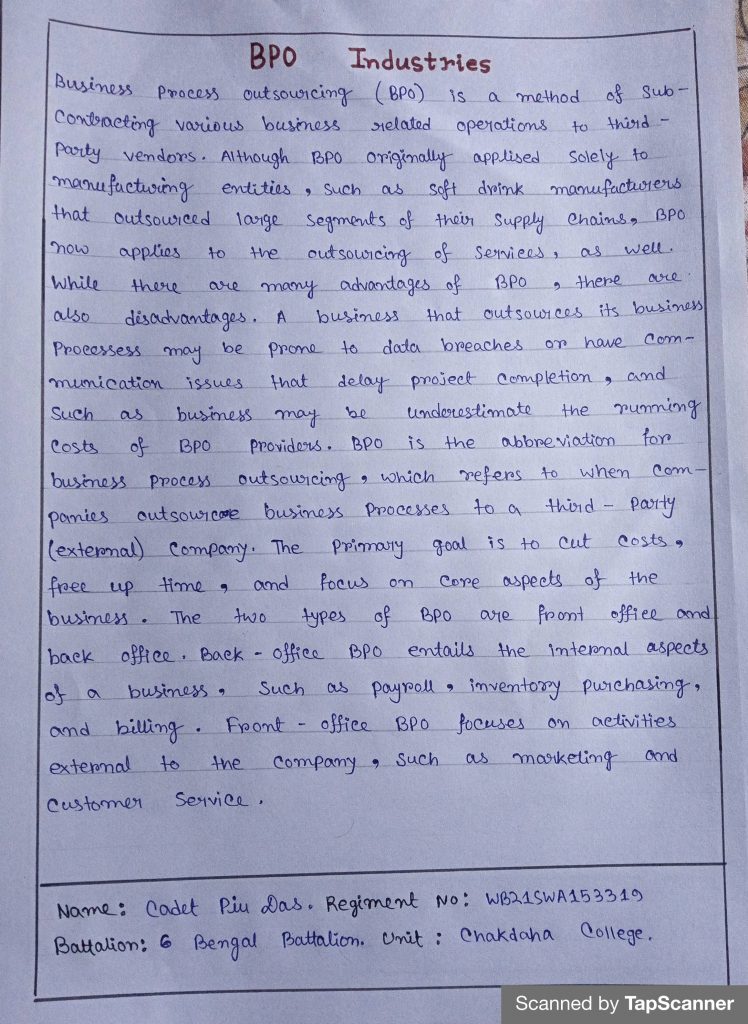 BPO Industries
Business Process outsourcing (BPO) is a method of Sub-
Contracting various business related operations to third-
Party vendors. Although BPO originally applised Solely to
manufacturing entities, such as soft drink manufacturers
that outsourced large segments of their Supply Chains, BPO
now applies to the outsourcing of Services, as well.
While there are many advantages of BPO, there are
also disadvantages. A business that outsources its business
Processess may be Prone to data breaches or have Com-
munication issues that delay project Completion, and
Such as business may be underestimate the running
Costs of BPO Providers. BPO is the abbreviation for
business Process outsourcing, which refers to when Com-
panies outsource business Processes to a third - Party
(external) Company. The Primary goal is to cut Costs,
free up time, and focus on Core aspects of the
business. The two types of BPO are front office and
back office. Back-office BPO entails the internal aspects
of a business, Such as payroll, inventory purchasing,
and billing. Front-office BPO focuses on activities
external to the Company, Such as marketing and
Customer Service.
Name: Cadet Piu Das. Regiment No: WB21SWA153319
Battalion: 6 Bengal Battalion. Unit: Chakdaha College.
Scanned by TapScanner